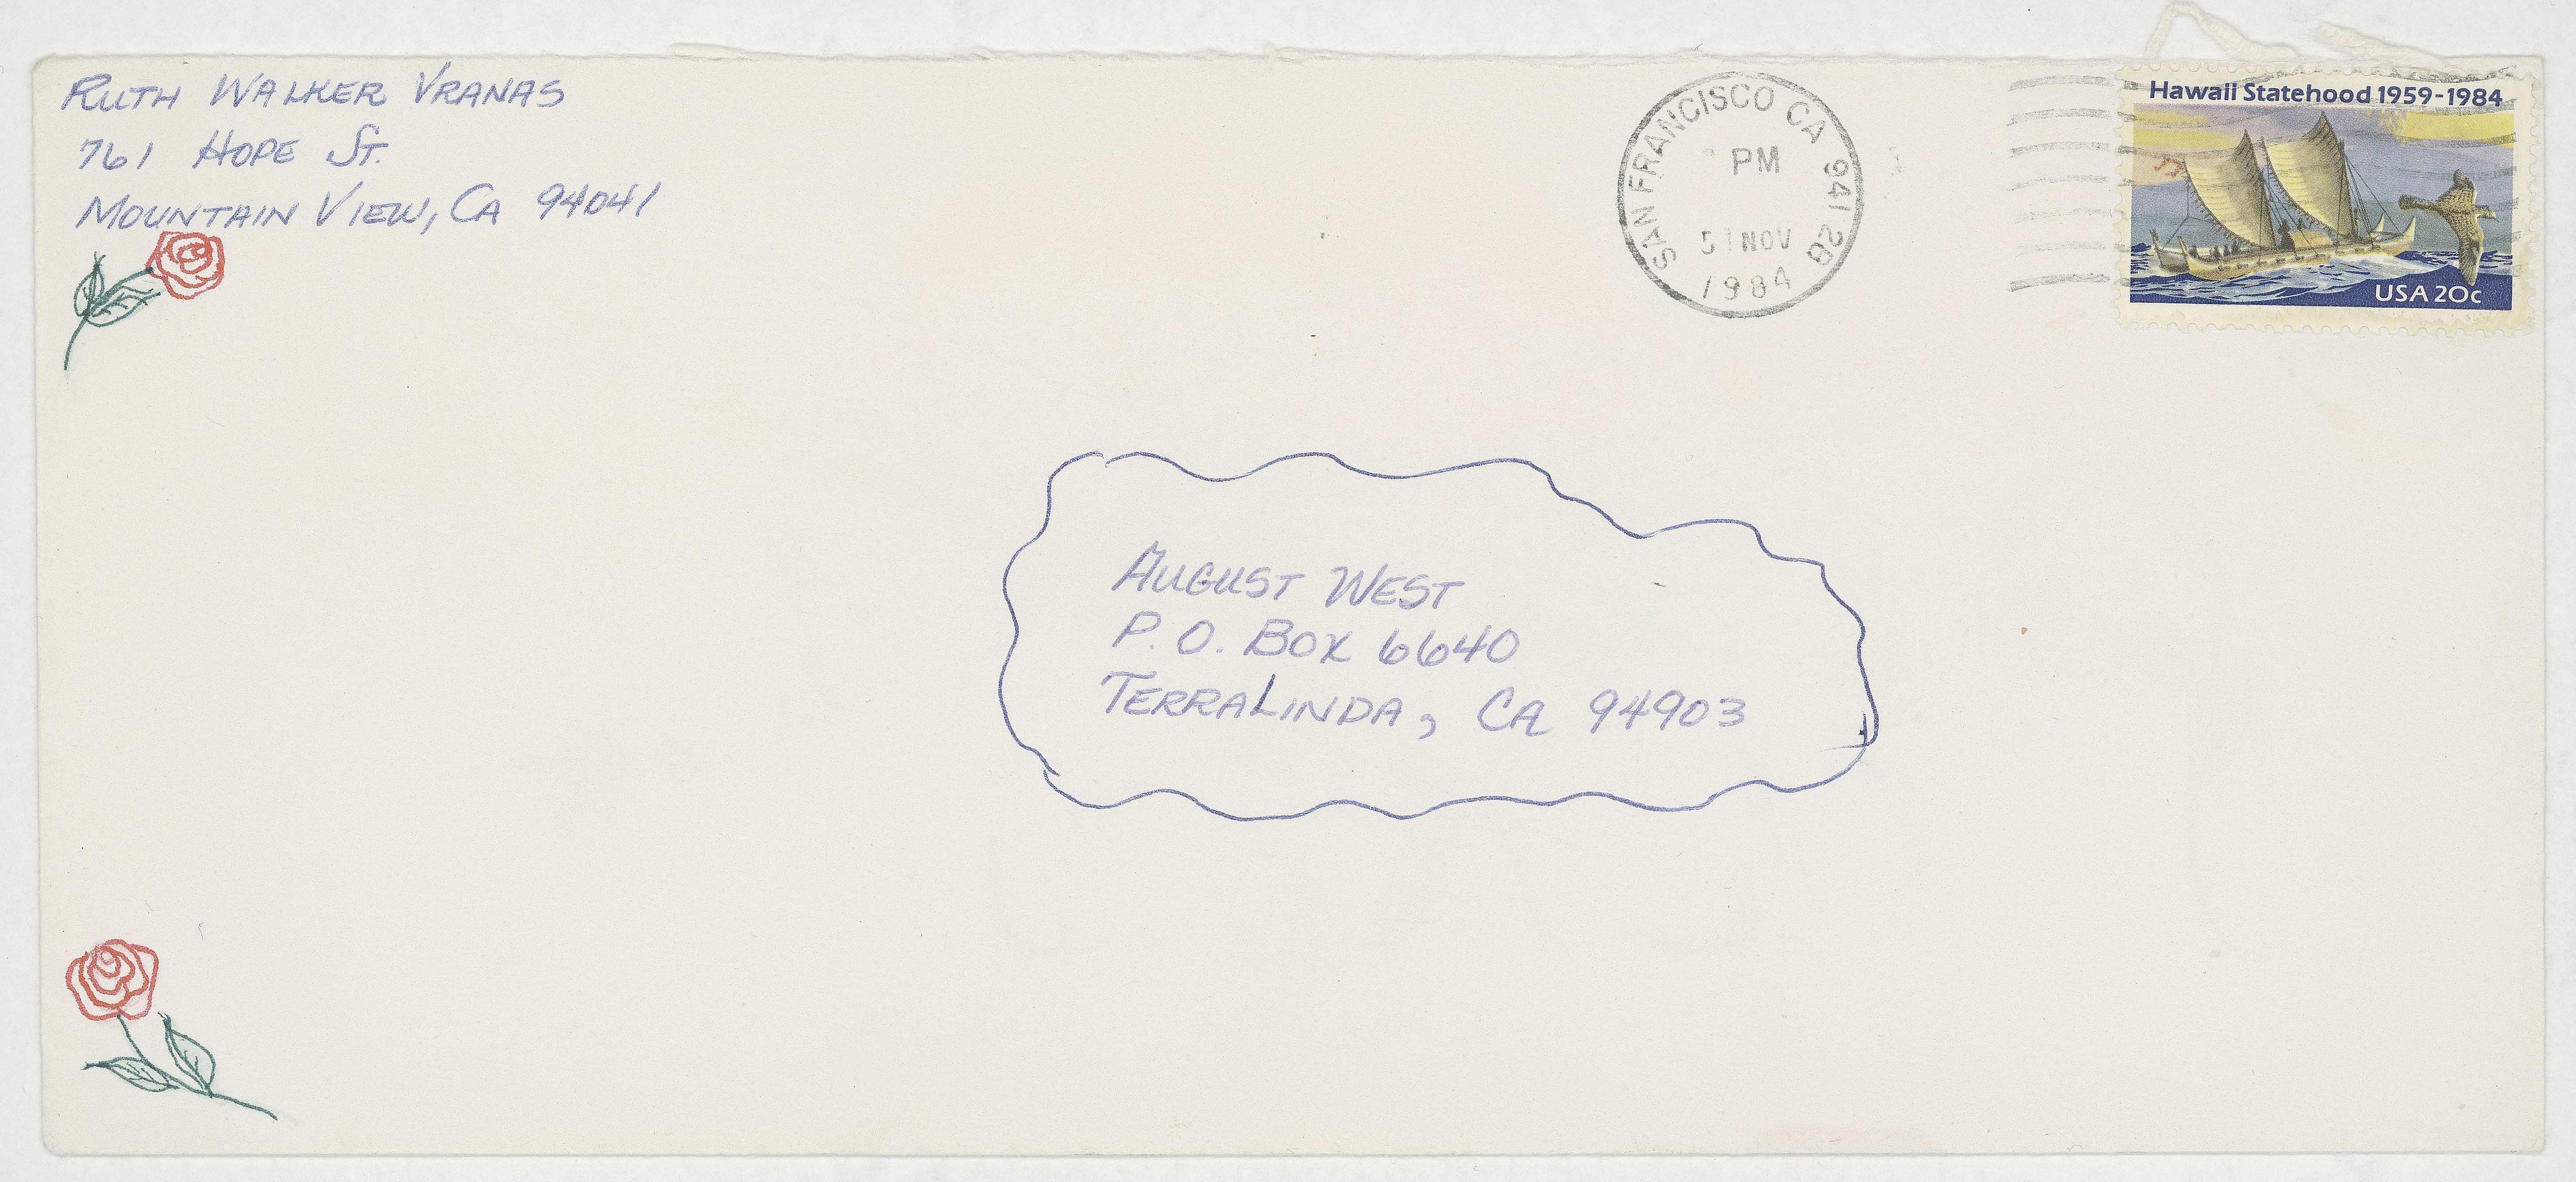 RUTH WALKER VRANAS
761 HOPE ST.
MOUNTAIN VIEW, CA 94041
SAN FRANCISCO CA 941 2B
PM
5 1 NOV
1984
Hawaii Statehood 1959-1984
USA 20c
AUGUST WEST
P. O. BOX 6640
TERRALINDA, CA 94903